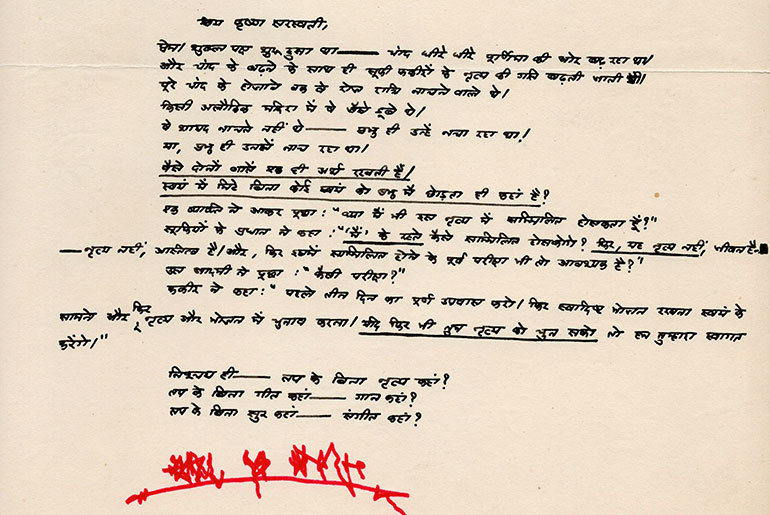 जय कृष्णा सरस्वती,
प्रेम। शुक्ल पक्ष शुरू हुआ था — चांद धीरे धीरे पूर्णिमा की ओर बढ़ रहा था।
और चांद के बढ़ने के साथ ही सूफी फकीरों के नृत्य की गति बढ़ती जाती थी।
पूरे चांद के होजाने तक वे रोज रात्रि नाचने वाले थे।
किसी अलौकिक मदिरा में वे जैसे डूबे थे।
वे शायद नाचते नहीं थे — प्रभु ही उन्हें नचा रहा था!
या, प्रभु ही उनमें नाच रहा था।
वैसे दोनों बातें एक ही अर्थ रखती हैं।
स्वयं में मिटे बिना कोई स्वयं को प्रभु में छोड़ता ही कहां है?
एक व्यक्ति ने आकर पूछा: "क्या मैं भी इस नृत्य में सम्मिलित होसकता हूँ?"
सूफियों के प्रधान ने कहा: "'मैं' के रहते कैसे सम्मिलित होसकोगे? फिर, यह नृत्य नहीं, जीवन है —
— नृत्य नहीं, अस्तित्व है। और, फिर इसमें सम्मिलित होने के पूर्व परीक्षा भी तो आवश्यक है?"
उस आदमी ने पूछा: "कैसी परीक्षा?"
फकीर ने कहा: "पहले तीन दिन का पूर्ण उपवास करो। फिर स्वादिष्ट भोजन रखना स्वयं के
सामने और फिर नृत्य और भोजन में चुनाव करना। यदि फिर भी तुम नृत्य को चुन सको तो हम तुम्हारा स्वागत
करेंगे।"
निश्चय ही — तप के बिना नृत्य कहां?
तप के बिना गीत कहां — गान कहां?
तप के बिना सुर कहां — संगीत कहां?